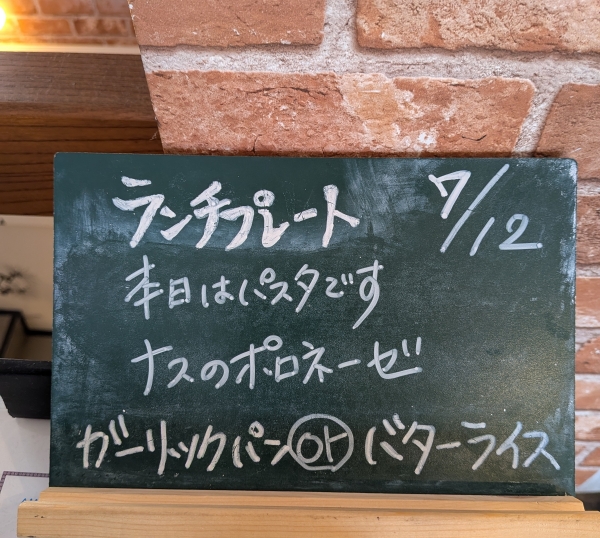 ランチプレート 7/12
本日はパスタです
ナスのポロネーゼ
ガーリックパン or バターライス